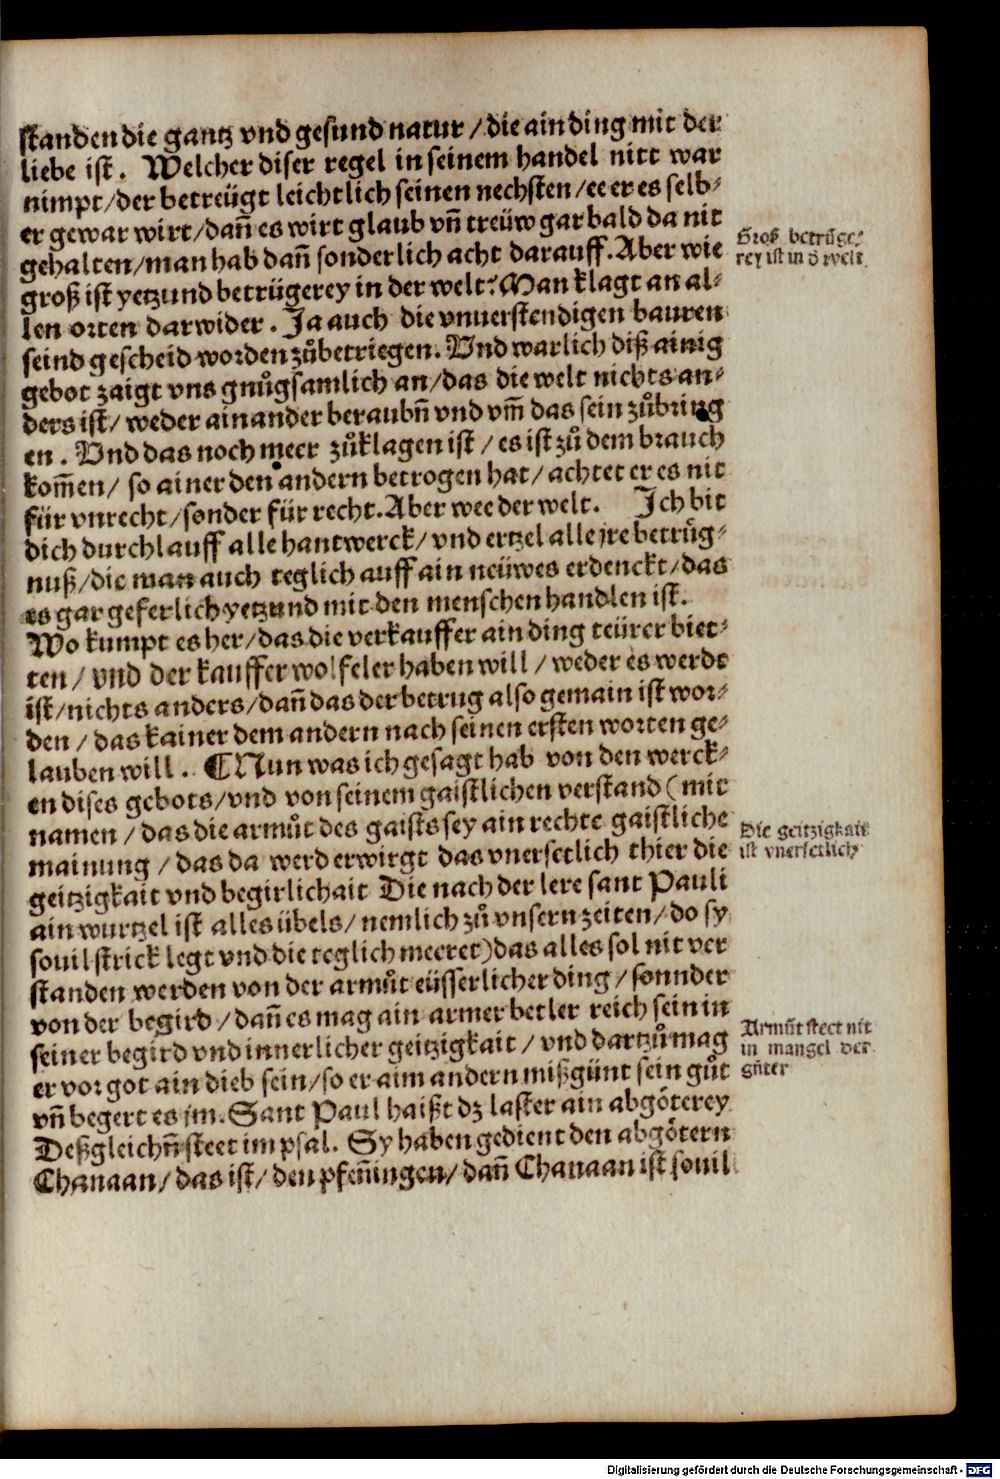 standen die gantz vnd gesund natur / die ain ding mit der
liebe ist. Welcher diser regel in seinem handel nitt war
nimpt / der betreügt leichtlich seinen nechsten / ee er es selb⸗
er gewar wirt / dañ es wirt glaub vñ treüw gar bald da nit
gehalten / man hab dañ sonderlich acht darauff. Aber wie
groß ist yetzund betrügerey in der welt? Man klagt an al⸗
len orten darwider. Ja auch die vnuerstendigen bauren
seind gescheid worden zůbetriegen. Vnd warlich diß ainig
gebot zaigt vns gnůgsamlich an / das die welt nichts an⸗
ders ist / weder ainander beraubñ vnd vm̃ das sein zůbring
en. Vnd das noch meer zůklagen ist / es ist zů dem brauch
kom̃en / so ainer den andern betrogen hat / achtet er es nit
für vnrecht / sonder für recht. Aber wee der welt. Ich bit
dich durchlauff alle hantwerck / vnd ertzel alle jre betrůg⸗
nuß / die man auch teglich auff ain neüwes erdenckt / das
es gar geferlich yetzund mit den menschen handlen ist.
Wo kumpt es her / das die verkauffer ain ding teürer biet⸗
ten / vnd der kauffer wolfeler haben will / weder es werdt
ist / nichts anders / dañ das der betrug also gemain ist wor⸗
den / das kainer dem andern nach seinen ersten worten ge⸗
lauben will. ¶ Nun was ich gesagt hab von den werck⸗
en dises gebots / vnd von seinem gaistlichen verstand (mit
namen / das die armůt des gaists sey ain rechte gaistliche
mainung / das da werd erwirgt das vnersetlich thier die
geitzigkait vnd begirlichait Die nach der lere sant Pauli
ain wurtzel ist alles übels / nemlich zů vnsern zeiten / do sy
souil strick legt vnd die teglich meeret) das alles sol nit ver
standen werden von der armůt eüsserlicher ding / sonnder
von der begird / dañ es mag ain armer betler reich sein in
seiner begird vnd innerlicher geitzigkait / vnd dartzů mag
er vor got ain dieb sein / so er aim andern mißgünt sein gůt
vñ begert es jm. Sant Paul haißt dz laster ain abgötterey
Deßgleichñ steet im psal. Sy haben gedient den abgöttern
Chanaan / das ist / den pfeñingen / dañ Chanaan ist souil
Groß betrůge⸗
rey ist in d̕ welt
Die geitzigkait
ist vnersetlich
Armůt steet nit
in mangel der
gůter
Digitalisierung gefördert durch die Deutsche Forschungsgemeinschaft - DFG